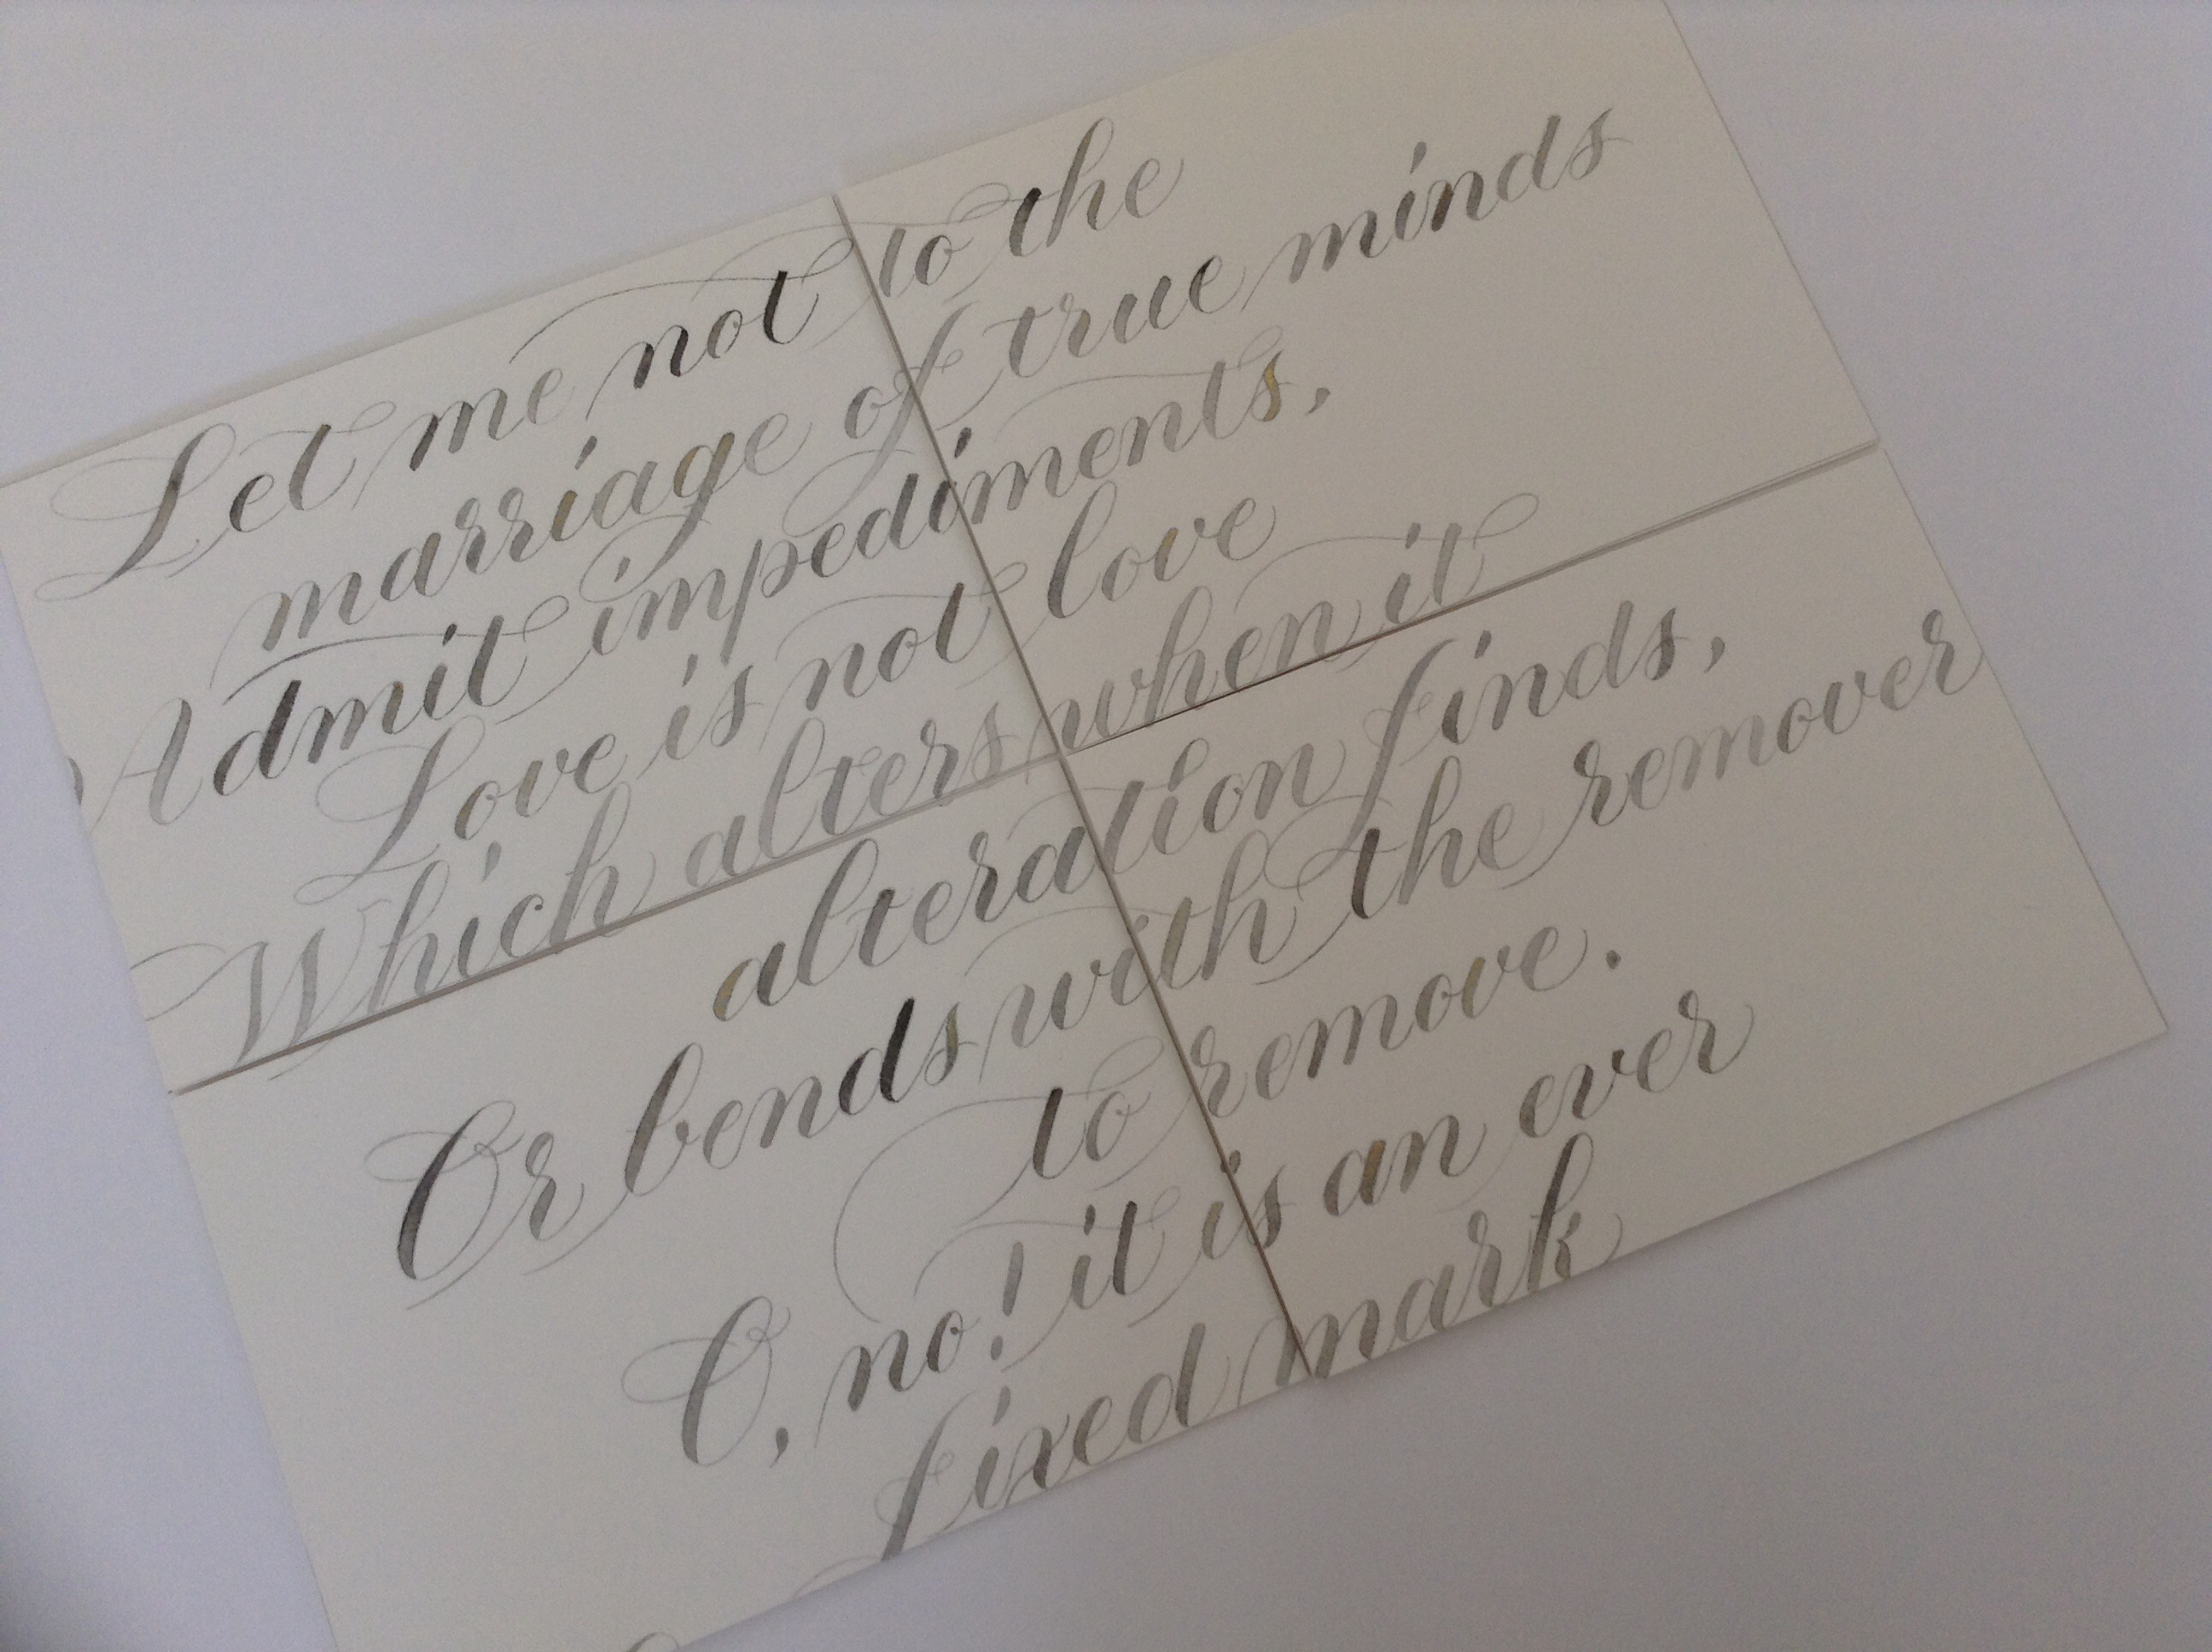 Let me not to the
marriage of true minds
Admit impediments,
Love is not love
Which alters when it
alteration finds,
Or bends with the remover
to remove.
O, no! it is an ever
fixed mark